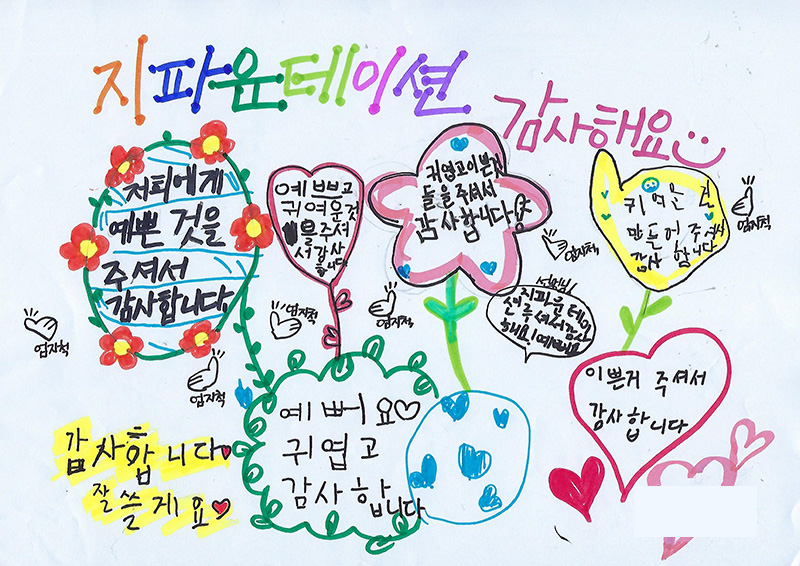 지파운데이션
감사해요
저희에게
예쁜 것을
주셔서
감사합니다
예쁘고
귀여운것
을주셔
서감사
합니다
귀엽고이쁜것
들을주셔서
감사합니다!
귀여운
만들어주셔서
감사합니다
엄지척
엄지척
엄지척
엄지척
엄지척
엄지척
선생님!
지파운데이
션
주셔서감사
해요!예뻐요
예뻐요♡
귀엽고
감사합니다
이쁜거 주셔서
감사합니다
감사합니다♥
잘쓸게요♥